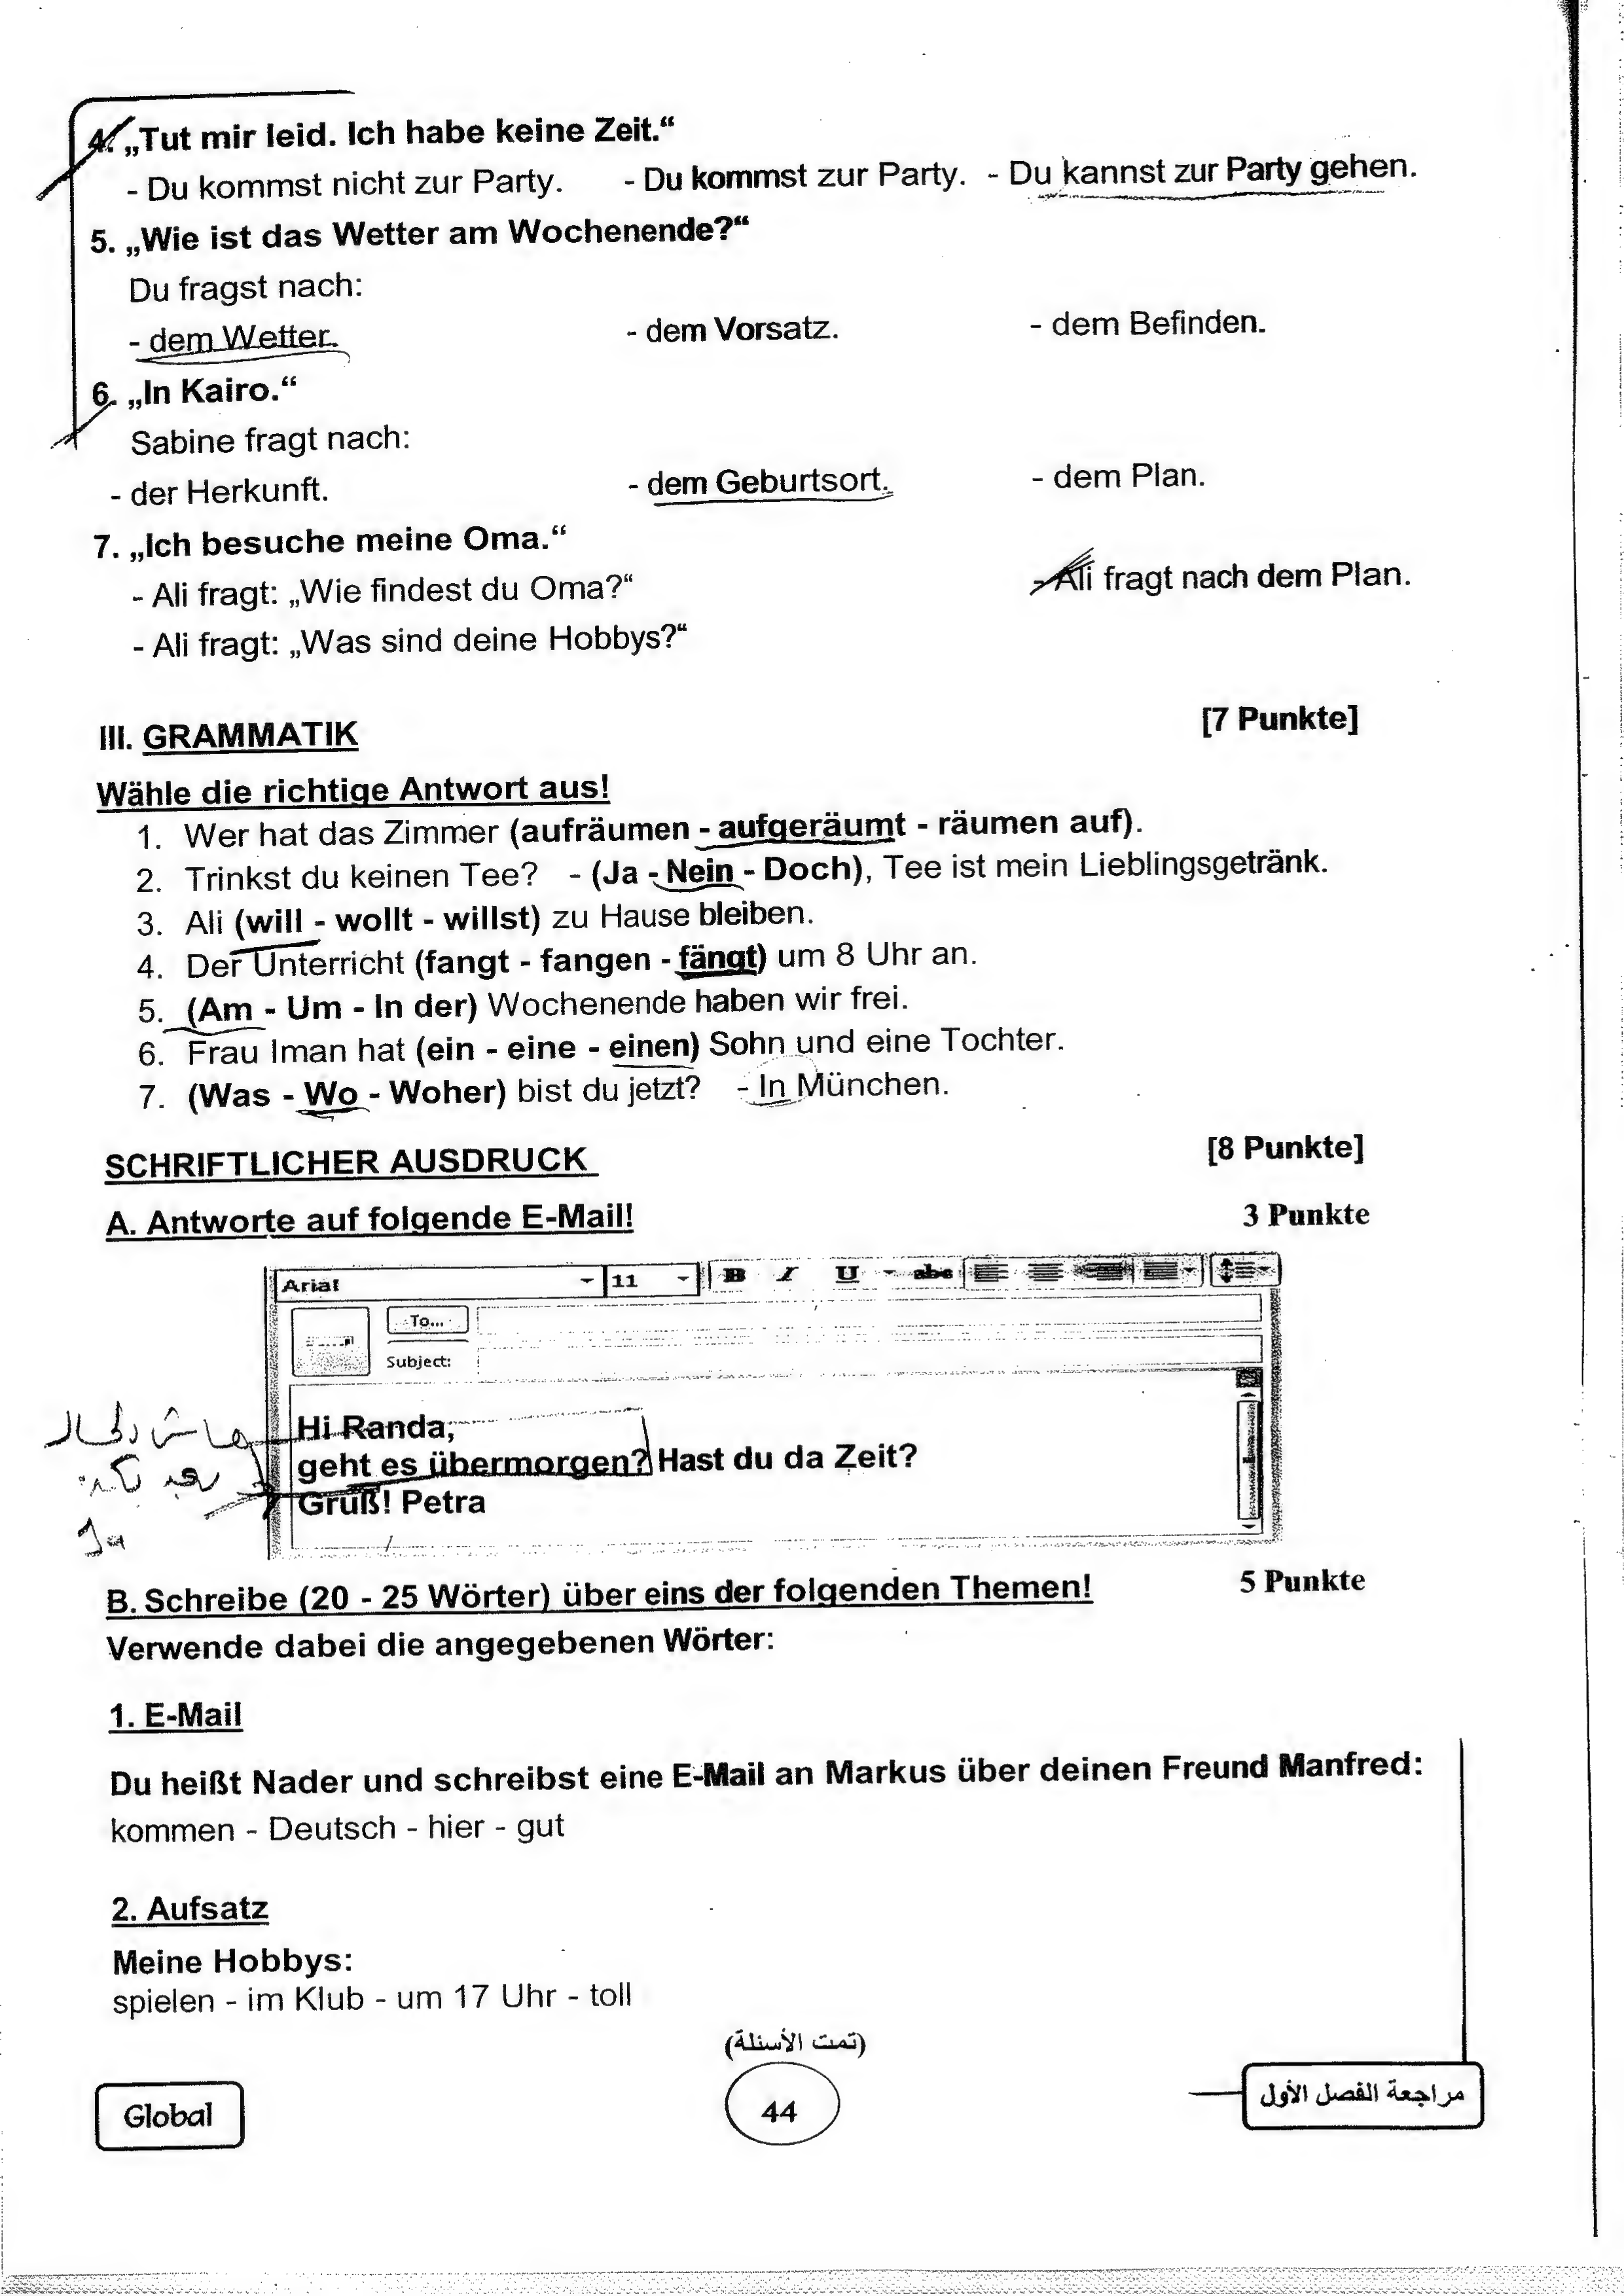 4. „Tut mir leid. Ich habe keine Zeit.“
- Du kommst nicht zur Party. - Du kommst zur Party. - Du kannst zur Party gehen.
5. „Wie ist das Wetter am Wochenende?“
Du fragst nach:
- dem Wetter. - dem Vorsatz. - dem Befinden.
6. „In Kairo.“
Sabine fragt nach:
- der Herkunft. - dem Geburtsort. - dem Plan.
7. „Ich besuche meine Oma.“
- Ali fragt: „Wie findest du Oma?“ - Ali fragt nach dem Plan.
- Ali fragt: „Was sind deine Hobbys?“
III. GRAMMATIK [7 Punkte]
Wähle die richtige Antwort aus!
1. Wer hat das Zimmer (aufräumen - aufgeräumt - räumen auf).
2. Trinkst du keinen Tee? - (Ja - Nein - Doch), Tee ist mein Lieblingsgetränk.
3. Ali (will - wollt - willst) zu Hause bleiben.
4. Der Unterricht (fangt - fangen - fängt) um 8 Uhr an.
5. (Am - Um - In der) Wochenende haben wir frei.
6. Frau Iman hat (ein - eine - einen) Sohn und eine Tochter.
7. (Was - Wo - Woher) bist du jetzt? - In München.
SCHRIFTLICHER AUSDRUCK [8 Punkte]
A. Antworte auf folgende E-Mail! 3 Punkte
Arial 11 B I U abc
To...
Subject:
Hi Randa,
geht es übermorgen? Hast du da Zeit?
Gruß! Petra
B. Schreibe (20 - 25 Wörter) über eins der folgenden Themen! 5 Punkte
Verwende dabei die angegebenen Wörter:
1. E-Mail
Du heißt Nader und schreibst eine E-Mail an Markus über deinen Freund Manfred:
kommen - Deutsch - hier - gut
2. Aufsatz
Meine Hobbys:
spielen - im Klub - um 17 Uhr - toll
(تمت الأسئلة)
Global 44 مراجعة الفصل الأول